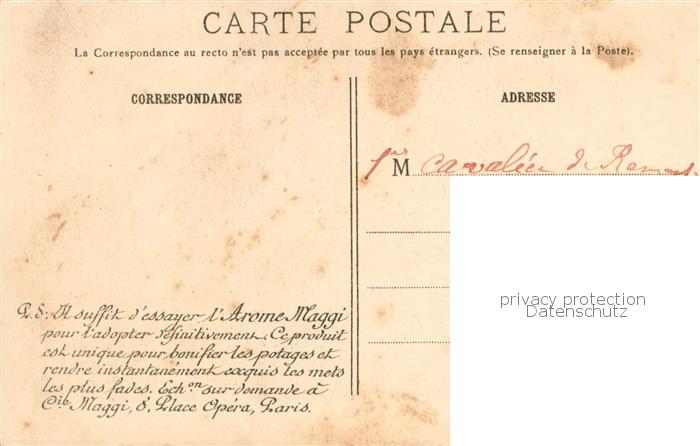 CARTE POSTALE
La Correspondance au recto n'est pas acceptée par tous les pays étrangers. (Se renseigner à la Poste).
CORRESPONDANCE
ADRESSE
M Cavalier de
privacy protection
Datenschutz
P.S: Il suffit d'essayer l'Arome Maggi
pour l'adopter définitivement. Ce produit
est unique pour bonifier les potages et
rendre instantanément exquis les mets
les plus fades. Échon sur demande à
Cie Maggi, 8, Place Opéra, Paris.